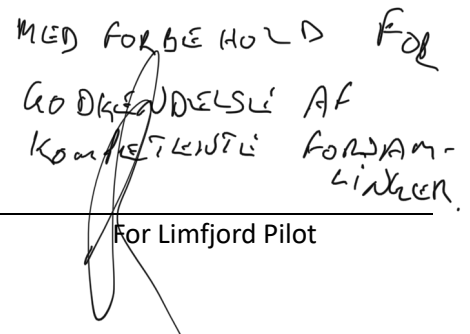 MED FORBEHOLD FOR
GODKENDELSE AF
KOMPETENTE FORSAM-
LINGER.
For Limfjord Pilot